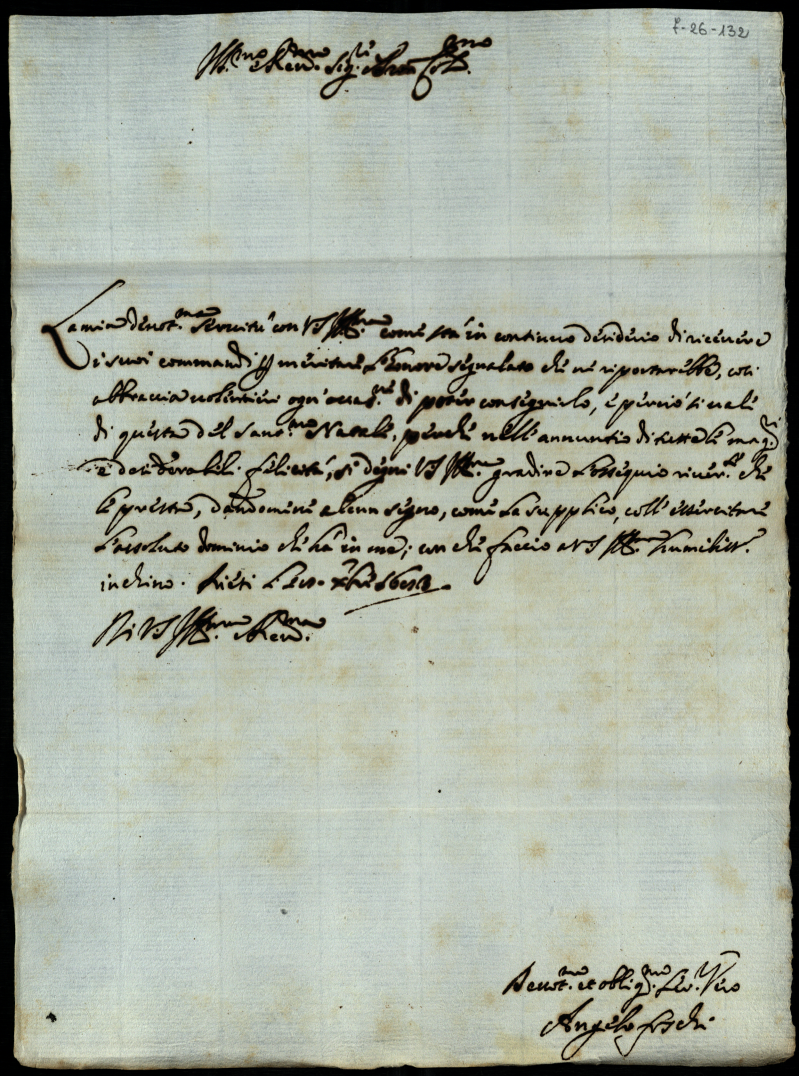 7-26-132
Ill.mo e Rev.mo Sig.r Pron Col.mo
La mia devot.ma servitù con VS Ill.ma come sta in continuo desiderio di ricevere
i suoi commandi p meritare l'honore segnalato che ne riportarebbe, così
abbraccia volentieri ogn'occas.ne di poter conseguirlo, e perciò si vale
di questa del Sant.mo Natale, perche nell'annuntio di tutte le mag.ri
e desiderabili felicità, si degni VS Ill.ma gradire l'ossequio river.te che
le presta, dandomene alcun segno, come la supplico, coll'essercitare
l'assoluto dominio che hà in me; con che faccio a VS Ill.ma humiliss.o
inchino. Rieti li Xbre
Di VS Ill.ma e Rev.ma
Devot.mo et oblig.mo Ser.re Vero
Angelo